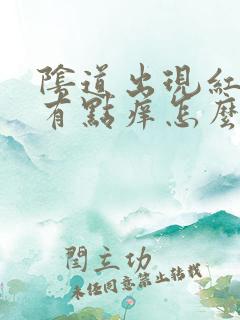 陰道出現紅
有點痒怎麼
閆立功
未经同意禁止转载